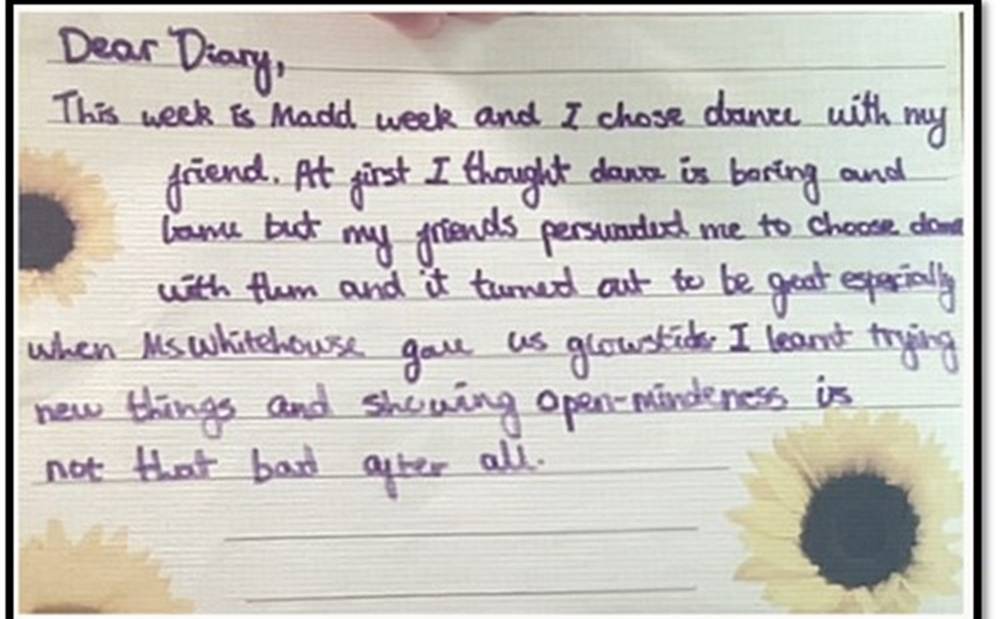 Dear Diary,
This week is Madd week and I chose dance with my
friend. At first I thought dance is boring and
lame but my friends persuaded me to choose dance
with them and it turned out to be great especially
when Ms Whitehouse gave us glowsticks I learnt trying
new things and showing open-mindeness is
not that bad after all.